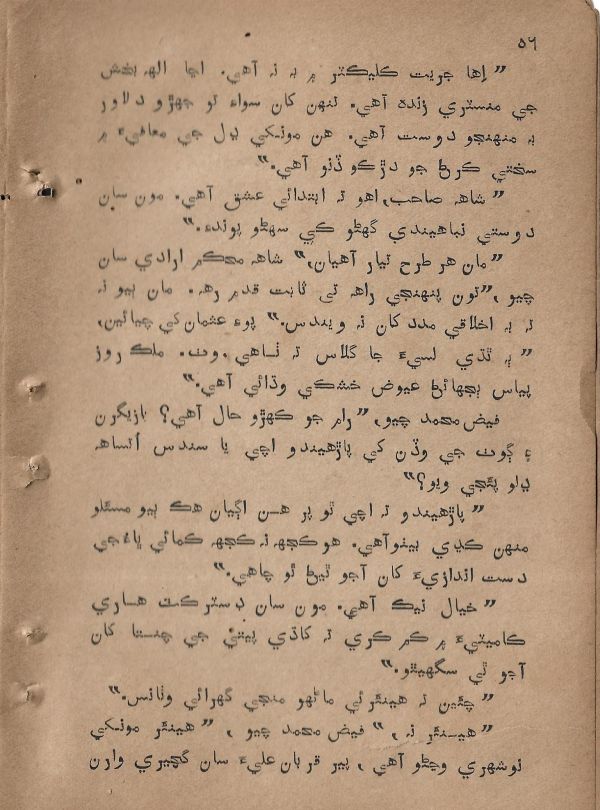 ٥٦
”اِها جريت ڪليڪٽر ۾ به نه آهي. اڃا الهه بخش
جي منسٽري زنده آهي. تنهن کان سواءِ ٿو جهڙو دلاور
به منهنجو دوست آهي. هن مونکي ڍل جي معافيءَ ۾
سختي ڪرڻ جو دڙڪو ڏنو آهي.“
”شاهه صاحب، اهو ته ابتدائي عشق آهي. مون سان
دوستي نباهيندي گهڻو ڪي سهڻو پوندءِ.“
”مان هر طرح تيار آهيان،“ شاهه محڪم ارادي سان
چيو، ”تون پنهنجي راهه تي ثابت قدم رهه. مان ٻيو نه
ته به اخلاقي مدد کان نه ويندس.“ پوءِ عثمان کي چيائين،
”به ٿڌي لسيءَ جا گلاس ته ٺاهي وٺ. ملڪ روز
پياس ٻجهائڻ عيوض خشڪي وڌائي آهي.“
فيض محمد چيو، ”رام جو ڪهڙو حال آهي؟ بازيگرن
۽ ڳوٺ جي وڏن کي پاڙهيندو اچي يا سندس اُتساهه
ڍلو پئجي ويو؟“
”پاڙهيندو ته اچي ٿو پر هن اڳيان هڪ ٻيو مسئلو
منهن ڪڍي بيٺو آهي. هو ڪجهه نه ڪجهه ڪمائي ڀاءُ جي
دست اندازيءَ کان آجو ٿيڻ ٿو چاهي.“
”خيال نيڪ آهي. مون سان ڊسٽرڪٽ هاري
ڪاميٽيءَ ۾ ڪم ڪري ته کاڌي پيتي جي چنتا کان
آجو ٿي سگهيٿو.“
”چئين ته هينئر ئي ماڻهو منجي گهرائي وٺانس.“
”هينئر نه،“ فيض محمد چيو، ”هينئر مونکي
نوشهري وڃڻو آهي، پير قربان عليءَ سان گجيري وارن